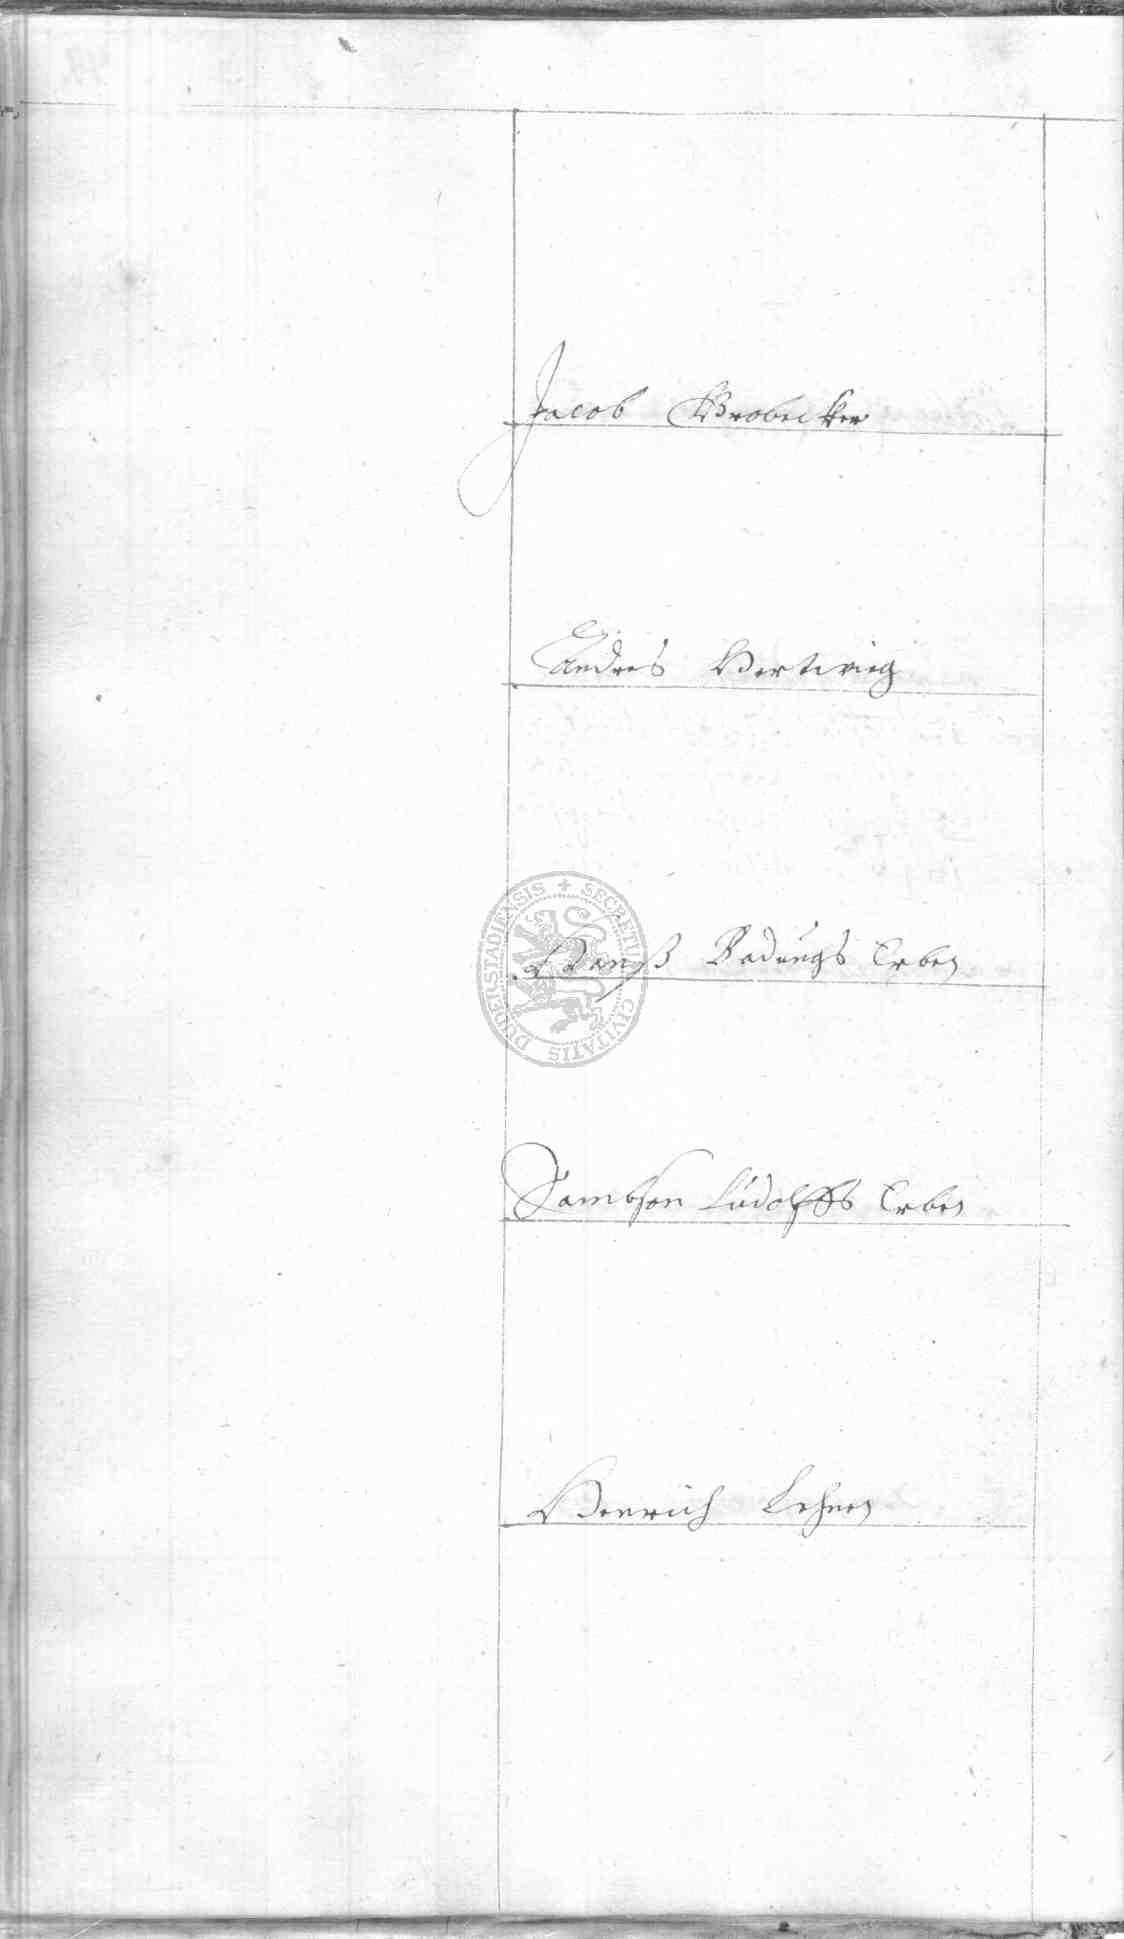 Jacob Brobecker
Andres Hertwig
Hanß Badungs Erben
Sambson Ludolffs Erben
Henrich Lehnen
SECRETUM CIVITATIS DUDERSTADIENSIS